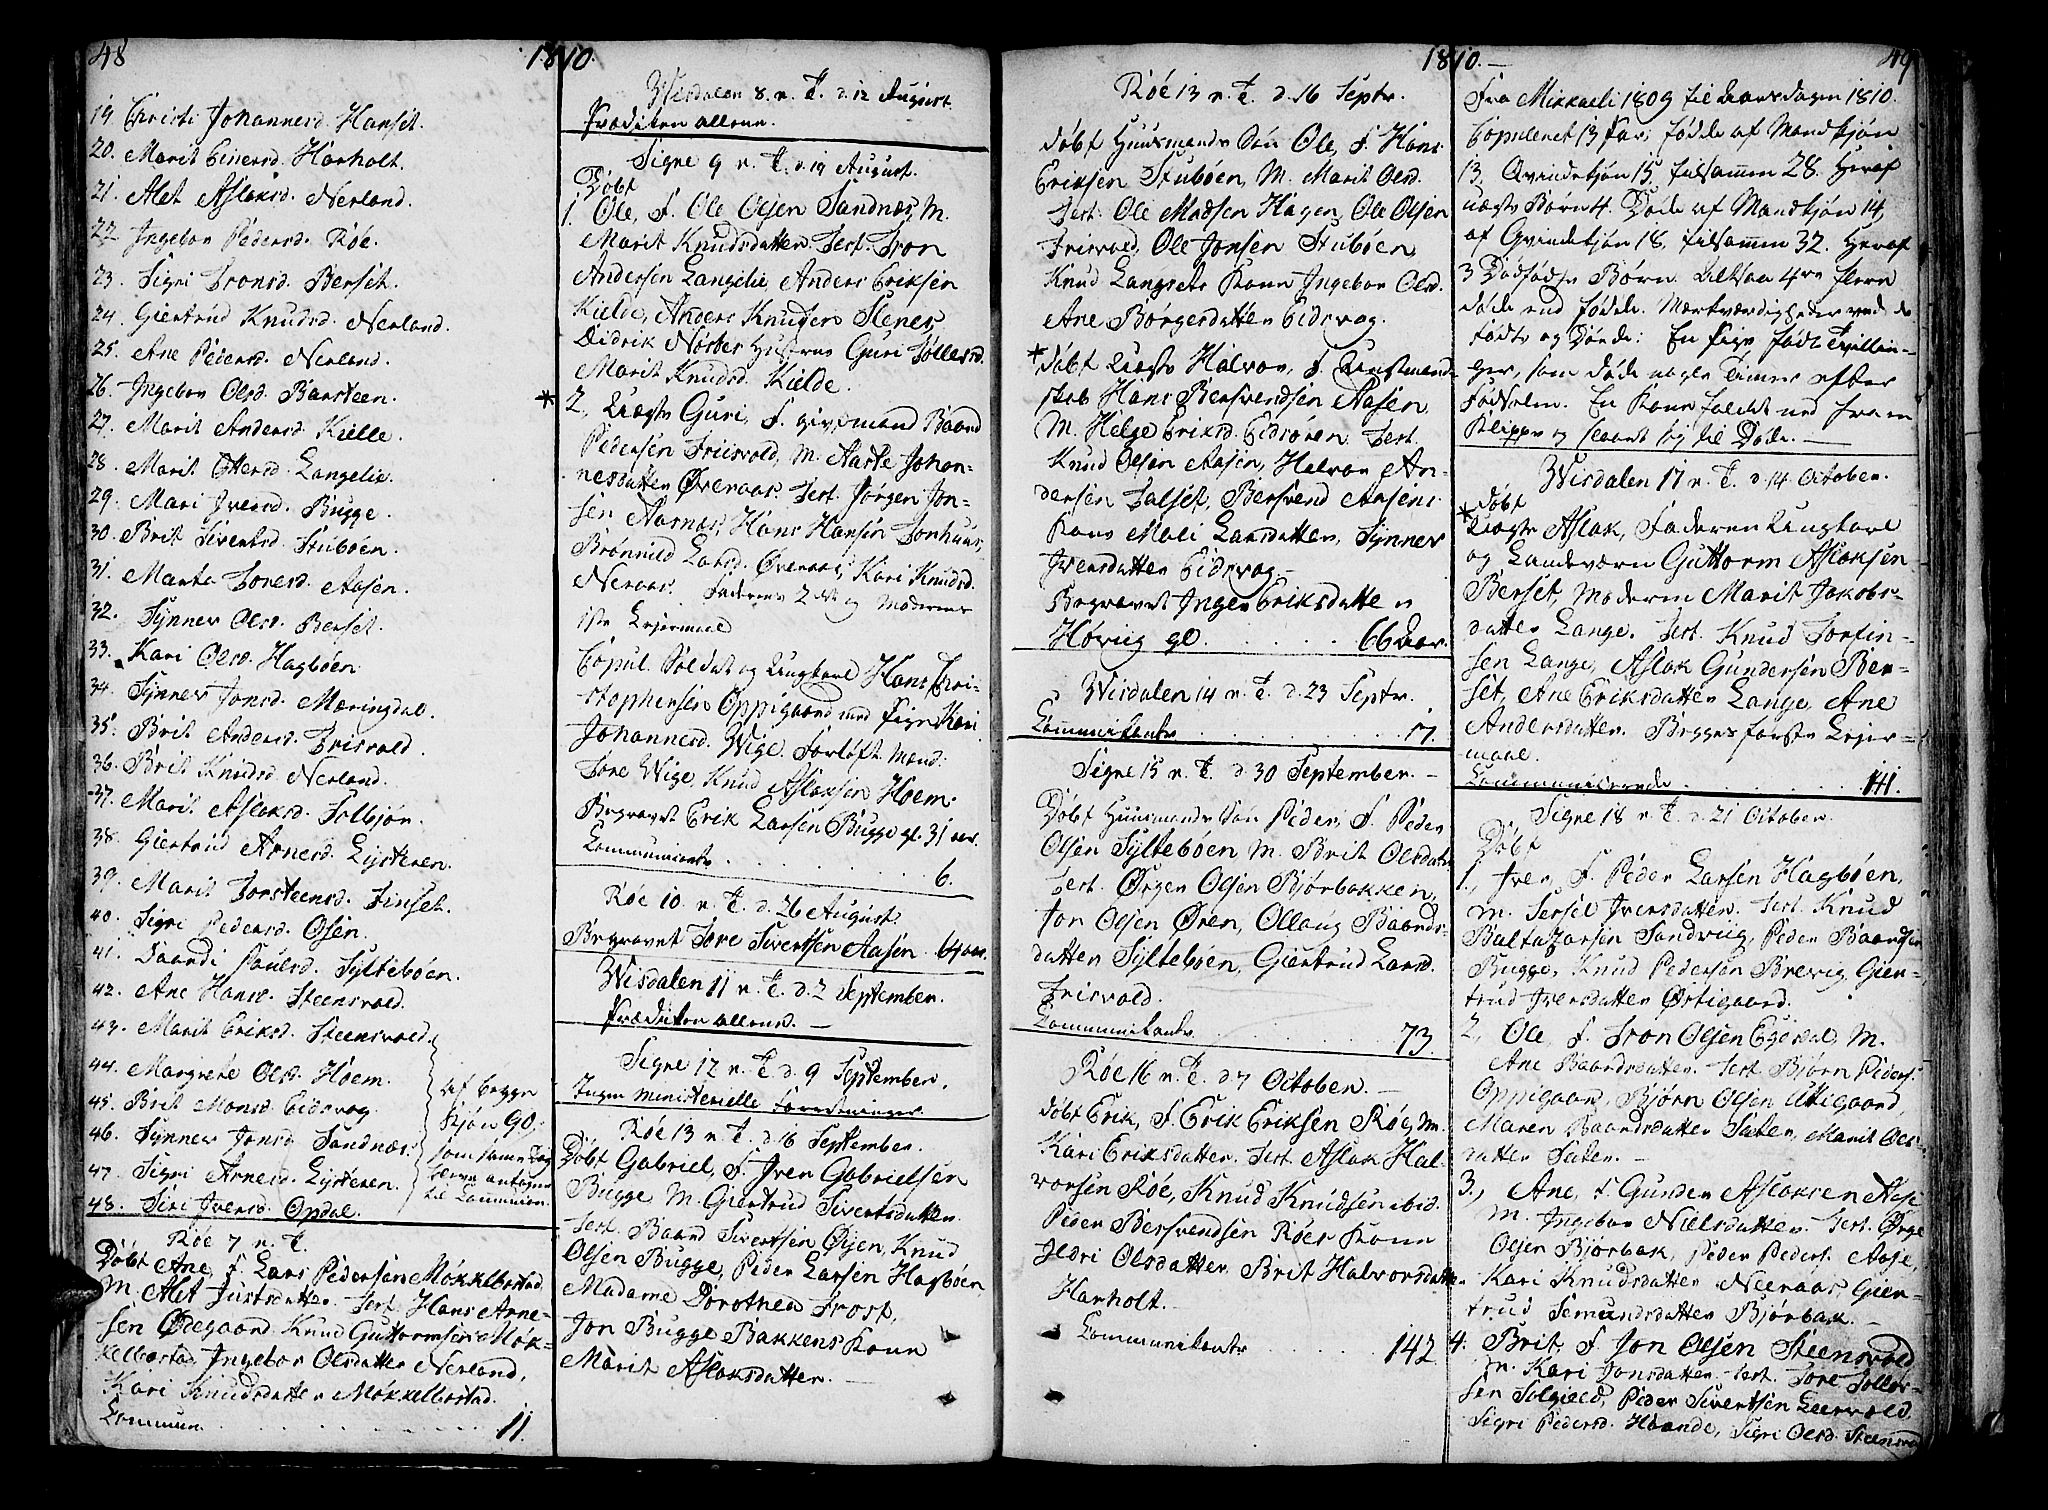 48
1810.
19. Christi Johannesd. Hanset.
20. Marit Einersd. Harholt.
21. Alet Aslaksd. Nerland.
22. Ingebor Pedersd. Röe.
23. Sigri Tronsd. Berset.
24. Giertrud Knudsd. Nerland.
25. Ane Pedersd. Nerland.
26. Ingebor Olsd. Baarsteen.
27. Marit Andersd. Kielle.
28. Marit Ottersd. Langelie.
29. Mari Iversd. Bugge.
30. Brit Sivertsd. Stubøen.
31. Marta Toresd. Aasen.
32. Synnev Olsd. Berset.
33. Kari Olsd. Hagbøen
34. Synnev Jonsd. Mæringdal.
35. Brit Andersd. Frisvold.
36. Brit Knudsd. Nerland.
37. Marit Aslaksd. Solbjør.
38. Giertrud Arnesd. Lysteren.
39. Marit Torsteensd. Finset.
40. Sigri Pedersd. Osen.
41. Baardi Poulsd. Syltebøen.
42. Ane Hansd. Steensvold.
43. Marit Eriksd. Steensvold.
44. Margrete Olsd. Hoem.
45. Brit Monsd. Eidsvog.
46. Synnev Jonsd. Sandnæs.
47. Sigri Arnesd. Lysteren.
48. Siri Iversd. Opdal.
af begge
Kjön 90,
som samme Dag
bleve antagne
til Communion.
Röe 7 n. T.
Döbt Ane, F. Lars Pedersen Mökkelbostad
M. Alet Justsdatter. Test. Hans Arne-
sen Ødegaard Knud Guttormsen Mök-
kelbostad, Ingebor Olsdatter Nerland,
Kari Knudsdatter Mökkelbostad.
Commun. 11.
Wisdalen 8. n. T. d. 12 August.
Prædiken allene.
Signe 9 n. T. d. 19 August.
Döbt
1. Ole, F. Ole Olsen Sandnæs, M.
Marit Knudsdatter. Test. Tron
Andersen Langelie, Anders Eriksen
Kielde, Anders Knudsen Stenes,
Didrik Norbes Hustrue Guri Tollevsd.
Marit Knudsd. Kielde.
* 2, Uægte Guri, F. givt mand Baard
Pedersen Friisvold, M. Aaste Johan-
nesdatter Øveraas. Test. Jörgen Jon-
sen Aarnæs, Hans Hansen Tonhuus,
Brönnild Larsd. Øveraas, Kari Knudsd.
Neraas. Faderens 2det og Moderens
1ste Lejermaal
Copul. Soldat og Ungkarl Hans Chri-
stophersen Oppigaard med Pige Kari
Johannesd. Wige. Forlöft. Mænd:
Tore Wige, Knud Aslaksen Hoem.
Begravet Erik Larsen Bugge gl. 31 aar.
Communicants . 6.
Röe 10 n. T. d. 26 August.
Begravet Tore Sivertsen Aasen
Wisdalen 11 n. T. d. 2 September.
Prædiken allene.
Signe 12 n. T. d. 9 September.
Ingen ministerielle Forretninger
Röe 13 n. T. d. 16 September.
Döbt Gabriel, F. Iver Gabrielsen
Bugge M. Giertrud Sivertsdatter.
Test. Baard Sivertsen Øien, Knud
Olsen Bugge, Peder Larsen Hagbøen
Madame Dorothea Frost,
Jon Bugge Bakkens Kone
Marit Aslaksdatter.
1810.
49
Röe 13 n. T. d. 16 Septr.
Döbt Huusmands Sön Ole, F. Hans
Eriksen Stubøen, M. Marit Olsd.
Test. Ole Madsen Hagen, Ole Olsen
Frisvold, Ole Jonsen Stubøen
Knud Langsets Kone Ingebor Olsd.
Ane Börgesdatter Eidsvog.
* Döbt Uægte Halvor, F. Landmand-
skab Hans Bersvendsen Aasen,
M. Helge Eriksd. Eidsören Test.
Knud Olsen Aasen, Halvor An-
dersen Talset, Bersvend Aasens
Kone Mali Larsdatter, Synnev
Iversdatter Eidsvog.
Begravet Inger Eriksdatter
Hövig gl. 66 Aar.
Wisdalen 14 n. T. d. 23 Septr.
Communikants 17.
Signe 15 n. T. d. 30 September.
Döbt Huusmands Sön Peder, F. Peder
Olsen Syltebøen M. Brit Olsdatr
Test. Ørgen Olsen Bjørbakken,
Jon Olsen Ören, Ollaug Baards-
datter Syltebøen, Giertrud Larsd.
Frisvold.
Communikants 73.
Röe 16 n. T. d. 7 October.
Döbt Erik, F. Erik Eriksen Röe, M.
Kari Eriksdatter. Test. Aslak Hal-
vorsen Röe, Knud Knudsen ibid.
Peder Bersvendsen Röes Kone
Jldri Olsdatter, Brit Halvorsdatter
Harholt.
Communikants 142
Fra Mikkaeli 1809 til Aarsdagen 1810.
Copuleret 13 Par; födde af Mandkjön
13, Qvindekjön 15, tilsammen 28. Heraf
uægte Börn 4. Döde af Mandkjön 14,
af Qvindekjön 18, tilsammen 32. Heraf
3 Dödfödde Börn. Altsaa 4re flere
döde end födde. Mærkværdigheder ved de
födte og Döde: En Pige födt Tvillin-
ger, som döde nogle Timer efter
Födselen. En Kone faldt ned fra en
Klippe og slaaet sig til Döde.
Wisdalen 17 n. T. d. 14 October.
Döbt
* Uægte Aslak, Faderen Ungkarl
og Landeværn Guttorm Aslaksen
Berset, Moderen Marit Jakobs-
datter Lange. Test. Knud Torfin-
sen Lange, Aslak Gundersen Ber-
set, Ane Eriksdatter Lange, Ane
Andersdatter. Begges förste Lejer-
maal.
Communicerede 141.
Signe 18 n. T. d. 21 October.
Döbt
1., Iver, F. Peder Larsen Hagbøen,
M. Sersel Iversdatter. Test. Knud
Baltazarsen Sandvig, Peder Baardsen
Bugge, Knud Pedersen Brevig, Gier-
trud Iversdatter Østigaard.
2, Ole, F. Tron Olsen Egesdal, M.
Ane Baardsdatter. Test. Björn Peders.
Oppigaard, Björn Olsen Utigaard
Maren Baardsdatter Sæter, Marit Ols-
datter Sæter.
3, Ane, F. Gunder Aslaksen Aase
M. Ingebor Nielsdatter. Test. Ørge
Olsen Bjørbak, Peder Peders. Aase,
Kari Knudsdatter Neeraas, Gier-
trud Semundsdatter Bjørbak.
4. Brit, F. Jon Olsen Steensvold
M. Kari Jonsdatter. Test. Tore Tollev-
sen Solgield, Peder Sivertsen Leervold,
Sigri Pedersd. Haande, Sigri Olsd. Steensvod